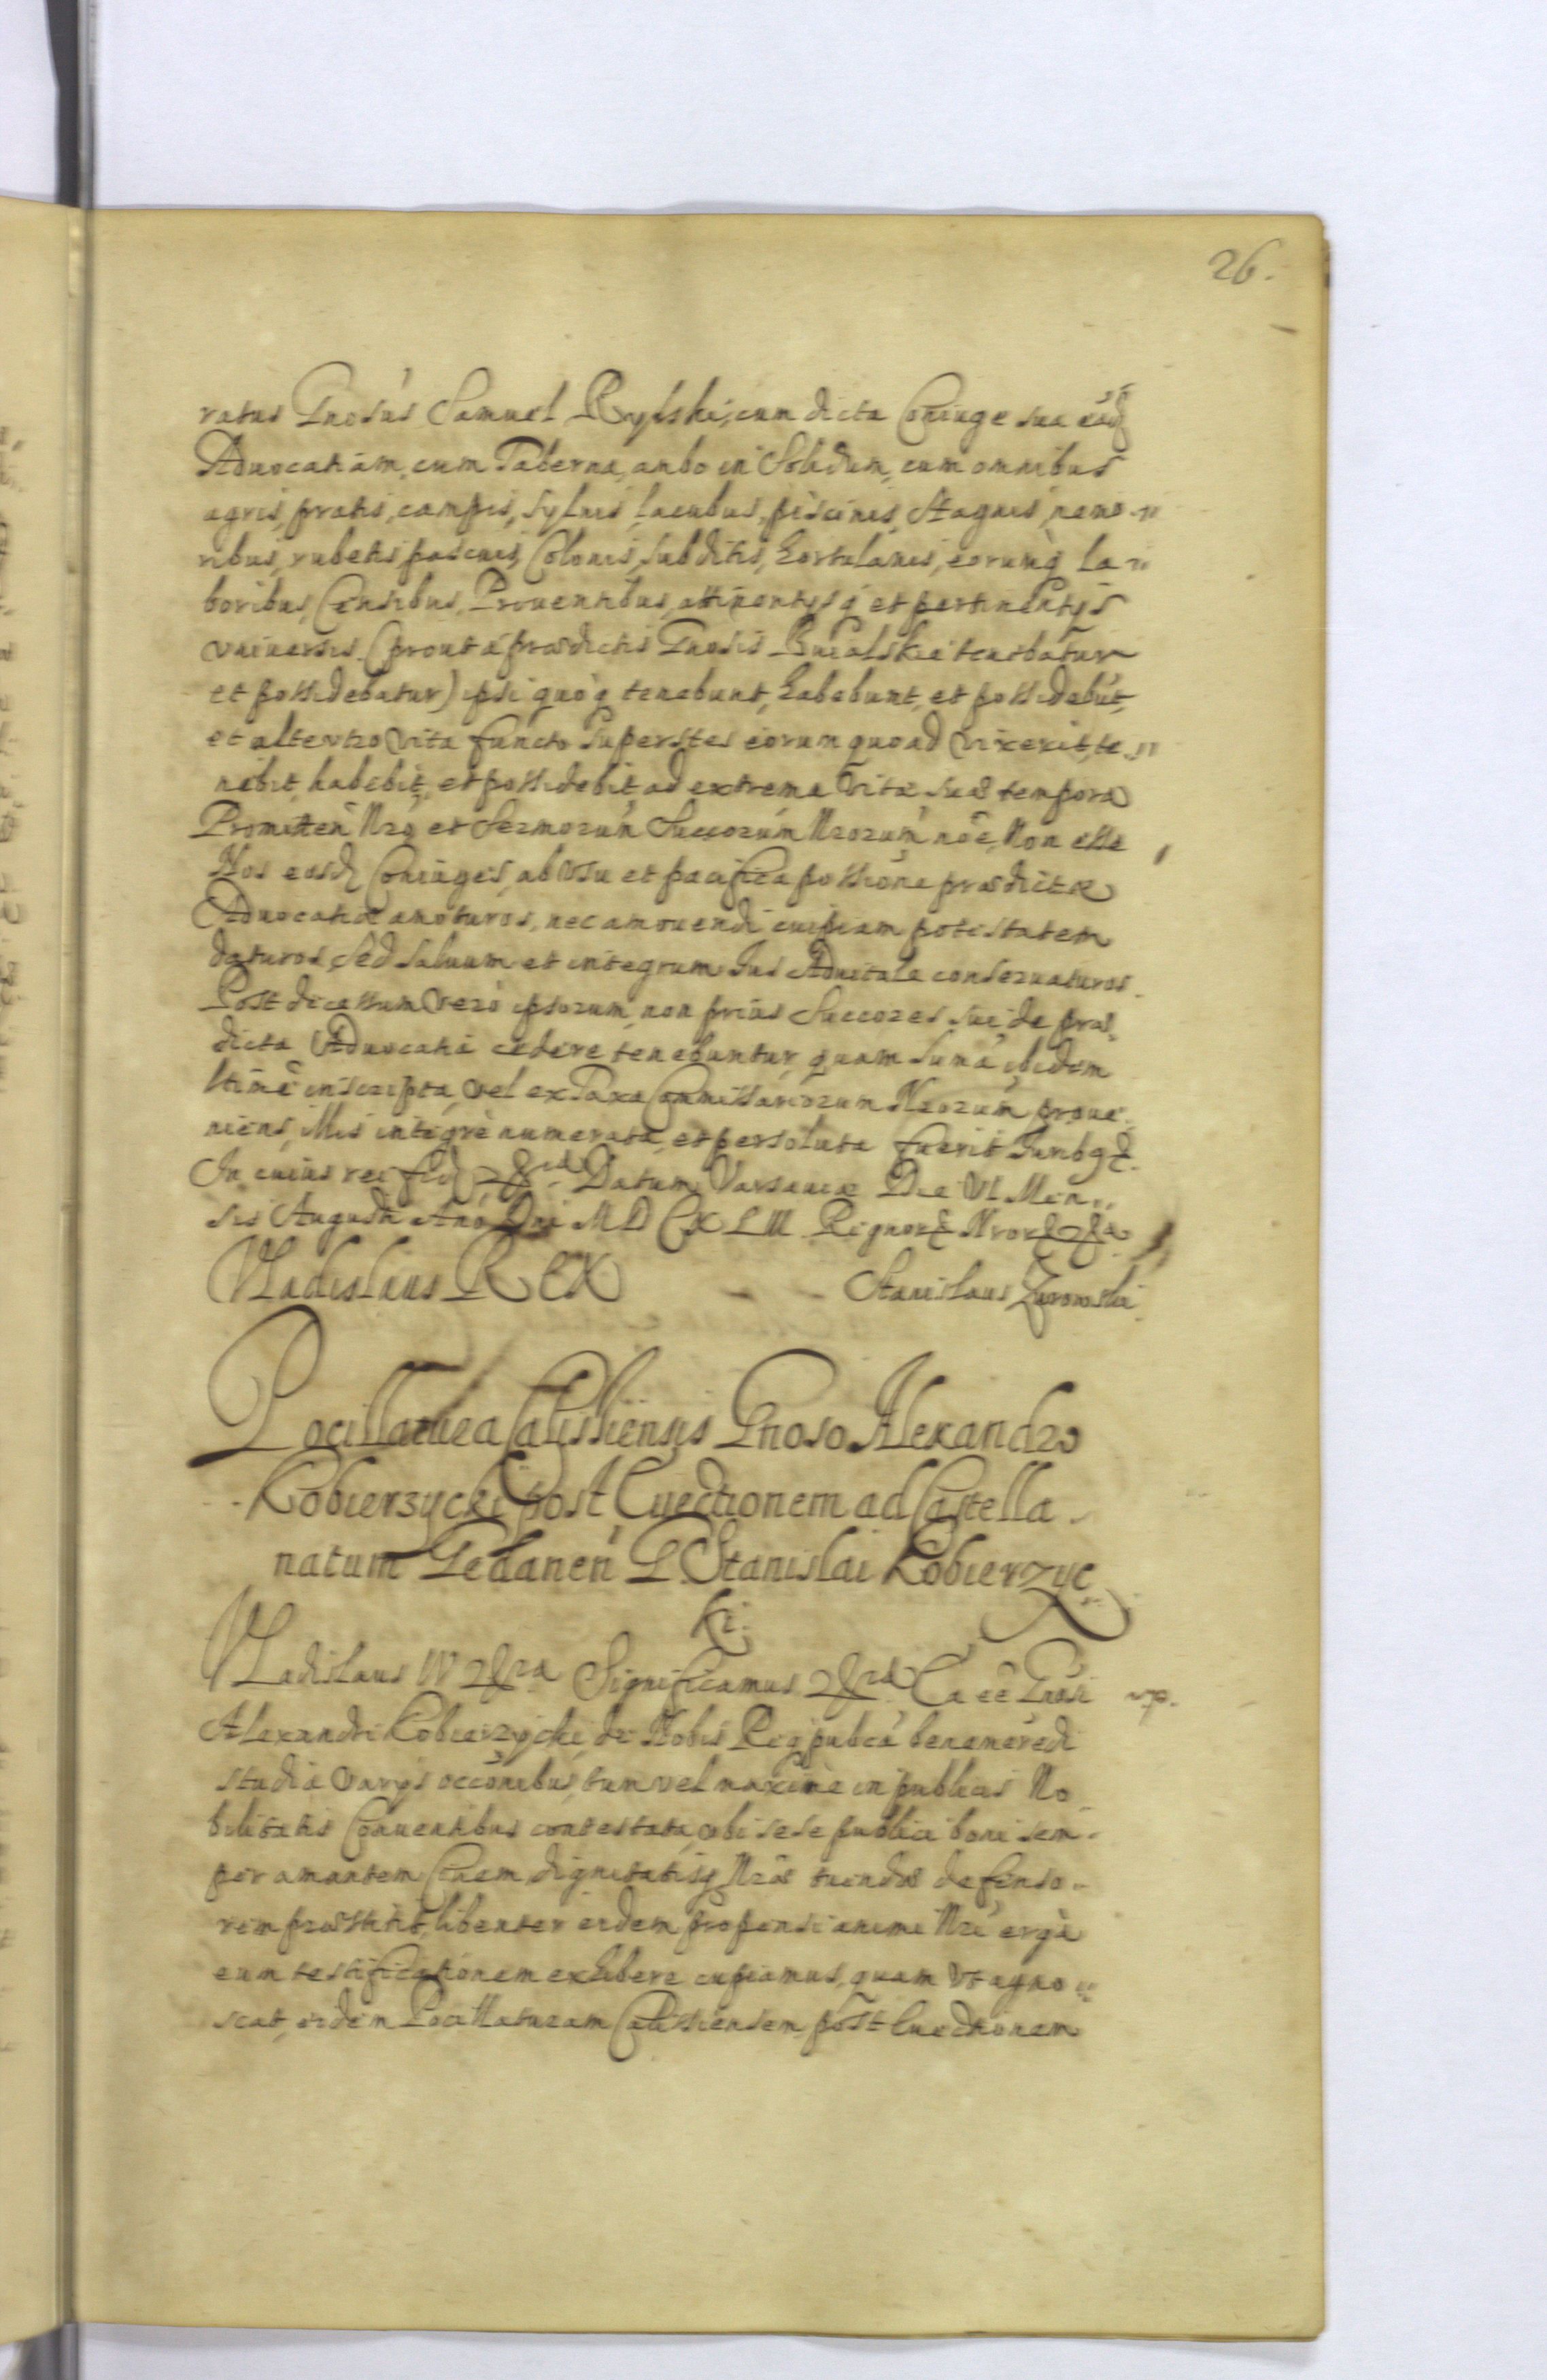 26.
ratus Gnosus Samuel Rylski, cum dicta Coniuge sua eād
Aduocatiam, cum Taberna, ambo in Solidum, cum omnibus
agris, pratis, campis, syluis, lacubus, piscinis, Stagnis, nemo-
ribus, rubetis, pascuis, Colonis, subditis, hortulanis, eorumq̀ la-
boribus, Censibus, Prouentibus, attinentijsq́ et pertinentijs
vniuersis (prout á praedictis Gnosis tenebatur
et possidebatur) ipsi quoq̀ tenebunt, habebunt, et possidebūt,
et alterutro vita functo Superstes eorum quoad vixerit, te-
nebit, habebit, et possidebit, ad extrema vitae suae tempora
Promitten Nro, et Sermorum Succorum Nrorum nōe, Non esse
Nos eosd Coniuges, ab vsu et pacifica possione praedictae
Aduocatiae amoturos, nec amouendi cuipiam potestatem
daturos, Sed saluum et integrum Ius Aduitale conseruaturos.
Post decessum verò ipsorum, non prius Succores sui de prae-
dicta Aduocatia cedere tenebuntur, quam suma ibidem
ltimē inscripta, vel ex Taxa Commissariorum Nrorum proue-
niens, illis integrè numerata, et persoluta fuerit Iuribq
In cuius rei fid Datum Varsauiae Die VI Men-
sis Augusti Ano Dni MDCXLII Regnor Nror
Vladislaus REX - - Stanislaus Zurowski
Pocillatura Calissiensis Gnoso Alexandro
Kobierzycki post Euectionem ad Castella-
natum Gedanen G. Stanislai Kobierzyc
ki.
Vladislaus IV Significamus Ea eē Gnosi
Alexandri Kobierzycki de Nobis Reiqpubca benemerēdi
studia varijs occōnibus, tum vel maximè in publicis No-
bilitatis Conuentibus contestata, vbi sese publici boni sem-
per amantem Ciuem, dignitatisq Nrae tuendae defenso-
rem praestitit, libenter eidem propensi animi Nri erga
eum testificationem exhibere cupiamus, quam vt agno-
scat, eidem Pocillaturam Calissiensem post Euectionem